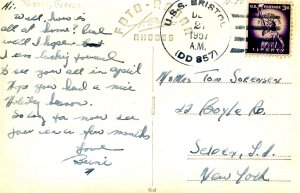 Hi:
Well, how is
all at home? And
well I hope
I am looking forward
to see you all in April
Hope you had a nice
Holiday Season.
So long for now see
you in a few months
Love
FOTO
RHODES
U.S.S. BRISTOL
DE
2
1957
A.M.
(DD 857)
3¢
LIBERTY
Mr Mrs Tom Sorensen
22 Boyle Rd.
Selden, L.I.
New York